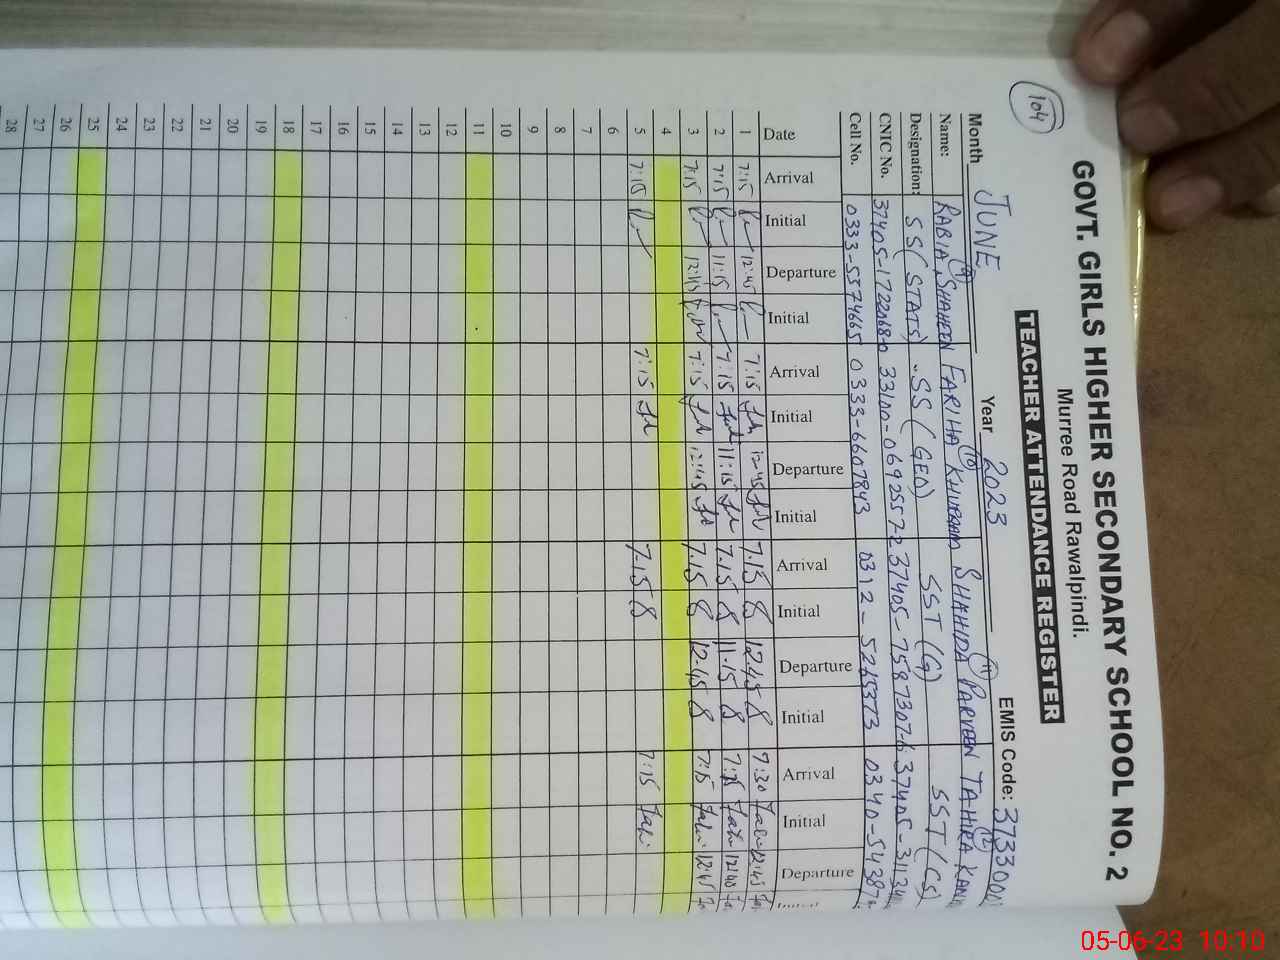 104
GOVT. GIRLS HIGHER SECONDARY SCHOOL NO. 2
Murree Road Rawalpindi.
TEACHER ATTENDANCE REGISTER
Month JUNE Year 2023 EMIS Code:
Name: (9) RABIA SHAHEEN (10) FARIHA KHURRAM (11) SHAHIDA PARVEEN (12) TAHIRA
Designation: SS (STATS) SS (GEO) SST (G) SST (CS)
CNIC No. 37405-1722068-0
Cell No. 0333-5574665 0333-6607843 0312-5265373
Date Arrival Initial Departure Initial Arrival Initial Departure Initial Arrival Initial Departure Initial Arrival Initial Departure Initial
1 7:15 12:45 7:15 12:45 7.15 8 12.45 8 7:30 12:45
2 7:15 11:15 7:15 11:15 7.15 8 11.15 8 7:15 12:40
3 7:15 12:45 7:15 12:45 7.15 8 12.45 8 7:15 12:45
4
5 7:15 7:15 7.15 8 7:15
6
7
8
9
10
11
12
13
14
15
16
17
18
19
20
21
22
23
24
25
26
27
28
05-06-23 10:10